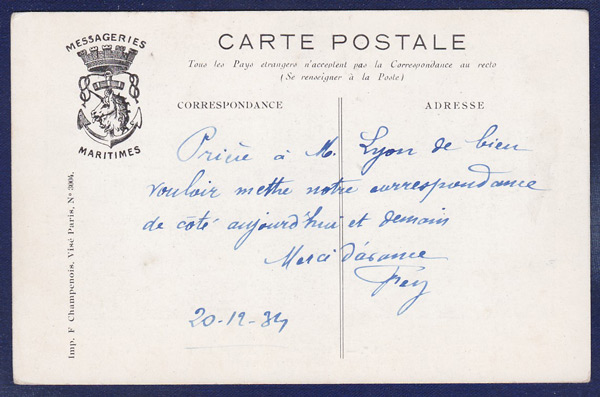 MESSAGERIES
MARITIMES
CARTE POSTALE
Tous les Pays etrangers n'acceptent pas la Correspondance au recto
(Se renseigner à la Poste)
CORRESPONDANCE
ADRESSE
Prière à M. Lyon de bien
vouloir mettre notre correspondance
de côté aujourd'hui et demain
Merci d'avance
20-12-34
Imp. F Champenois, Visé Paris, Nº 3004.